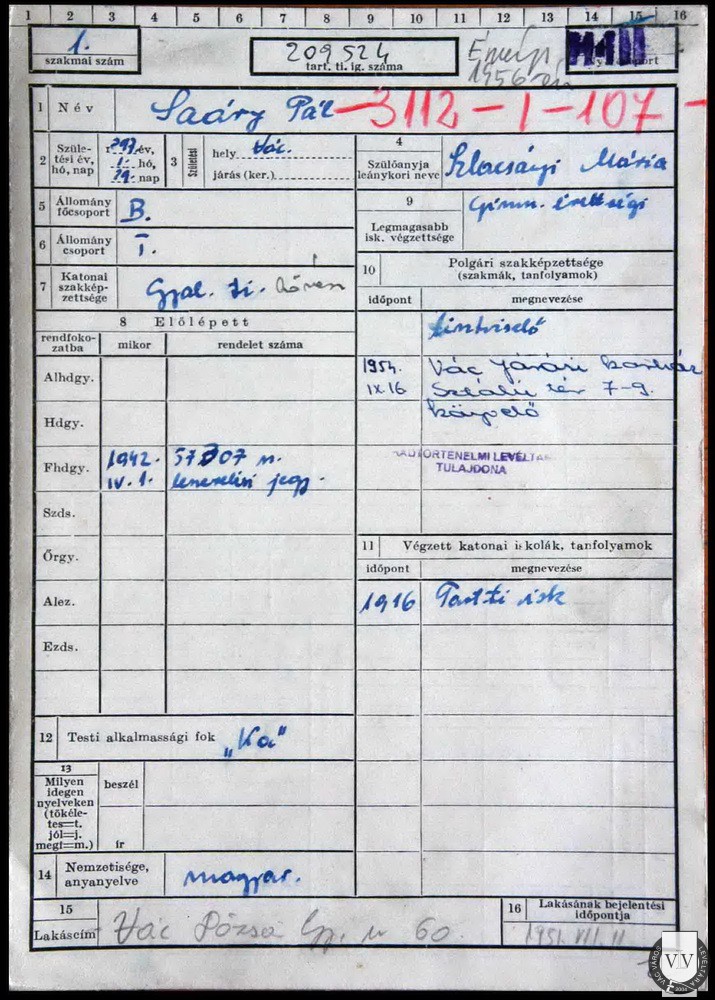 1 2 3 4 5 6 7 8 9 10 11 12 13 14 15 16
1.
szakmai szám
209524
tart. ti. ig. száma
1956
port
1 Név Saáry Pál 3112-1-107-
2 Születési év, hó, nap
1897. év,
1. hó,
29. nap
3 Születési
hely Vác.
járás (ker.)
4
Szülőanyja
leánykori neve
Mária
5 Állomány
főcsoport
B.
6 Állomány
csoport
I.
7 Katonai
szakkép-
zettsége
Gyal. ti.
9
Legmagasabb
isk. végzettsége
Gimn. érettségi
10 Polgári szakképzettsége
(szakmák, tanfolyamok)
időpont megnevezése
tisztviselő
1954. Vác Járási
IX. 16 Sztálin tér 7-9.
8 Előlépett
rendfoko-
zatba
mikor rendelet száma
Alhdgy.
Hdgy.
Fhdgy.
1942.
IV. 1.
07 n.
Szds.
Őrgy.
Alez.
Ezds.
HADTÖRTÉNELMI LEVÉLTÁR
TULAJDONA
11 Végzett katonai iskolák, tanfolyamok
időpont megnevezése
1916 Tart. ti isk
12 Testi alkalmassági fok „Ka"
13
Milyen
idegen
nyelveken
(tökéle-
tes=t.
jól=j.
megf=m.)
beszél
ír
14 Nemzetisége,
anyanyelve
magyar.
15
Lakáscím
Vác Dózsa Gy. u 60.
16 Lakásának bejelentési
időpontja
1951. VII. 11
VÁC VÁROS LEVÉLTÁRA
VLV